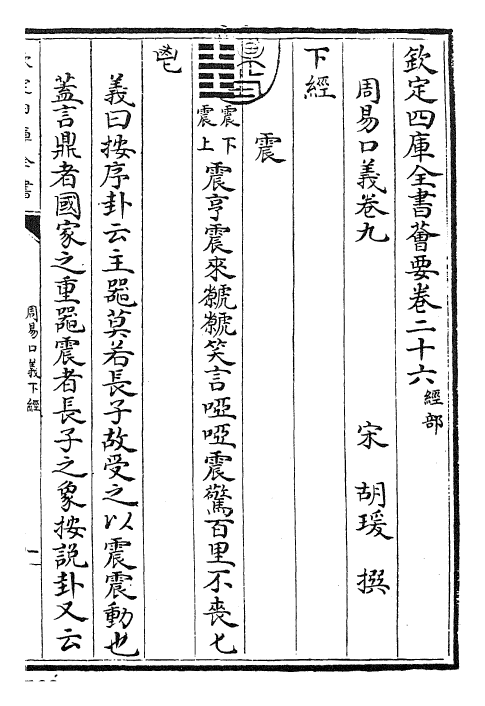 欽定四庫全書薈要卷二十六 經部
周易口義卷九
宋 胡瑗 撰
下經
震
震下
震上
震亨震來虩虩笑言啞啞震驚百里不喪匕
鬯
義曰按序卦云主器莫若長子故受之以震震動也
蓋言鼎者國家之重器震者長子之象按說卦又云
周易口義下經
一